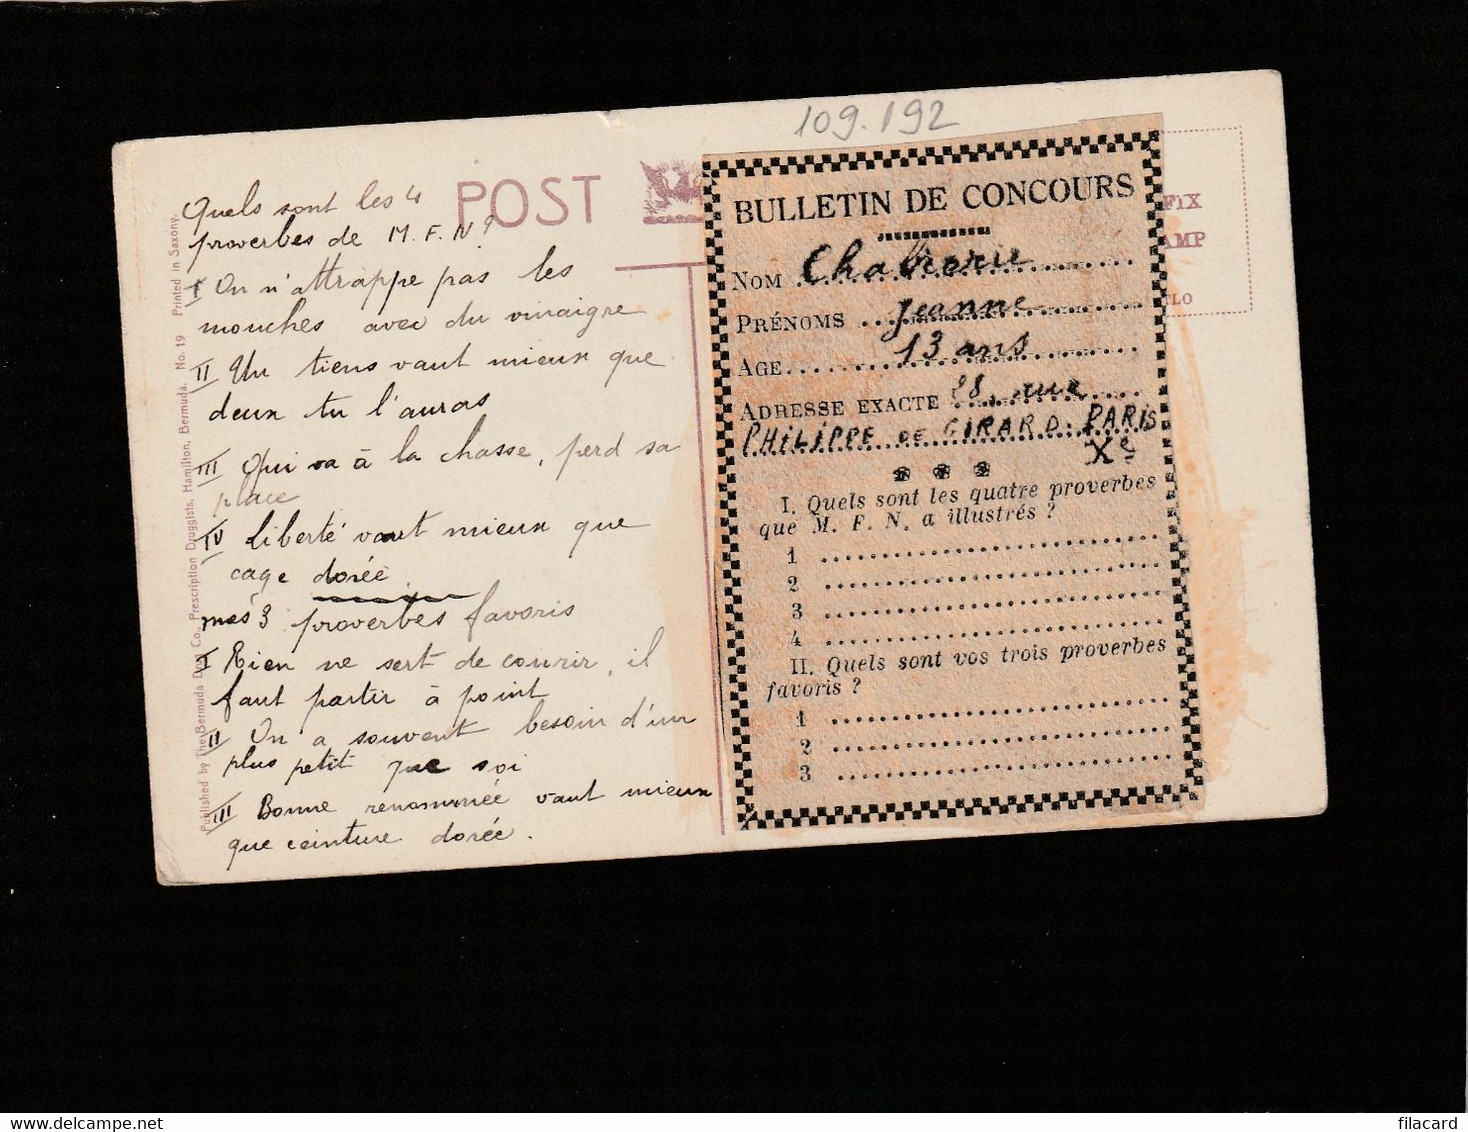 109.192
POST
Quels sont les 4
proverbes de M. F. N?
I On n'attrappe pas les
mouches avec du vinaigre
II Un tiens vaut mieux que
deux tu l'auras
III Qui va à la chasse, perd sa
place
IV Liberté vaut mieux que
cage dorée
mes 3 proverbes favoris
I Rien ne sert de courir, il
faut partir à point
II On a souvent besoin d'un
plus petit que soi
III Bonne renommée vaut mieux
que ceinture dorée.
Published by The Bermuda Drug Co., Prescription Druggists, Hamilton, Bermuda. No. 19 Printed in Saxony.
BULLETIN DE CONCOURS
NOM Chabrerie
PRÉNOMS Jeanne
AGE 13 ans
ADRESSE EXACTE 28, rue
PHILIPPE DE GIRARD. PARIS
Xe
I. Quels sont les quatre proverbes
que M. F. N. a illustrés ?
1
2
3
4
II. Quels sont vos trois proverbes
favoris ?
1
2
3
FIX
AMP
filacard